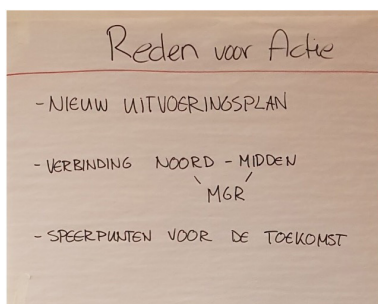 Reden voor Actie
- NIEUW UITVOERINGSPLAN
- VERBINDING NOORD - MIDDEN
MGR
- SPEERPUNTEN VOOR DE TOEKOMST